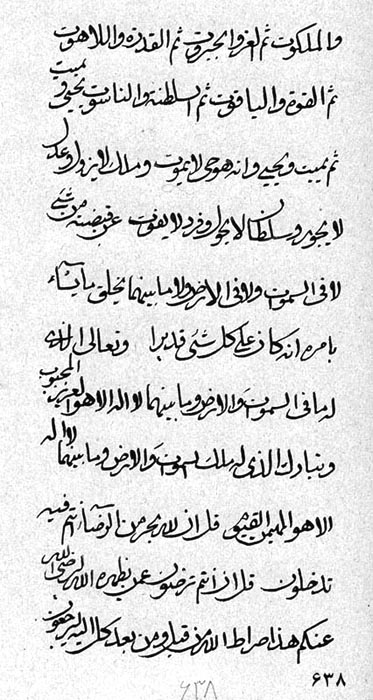 والملكوت ثم العز والجبروت ثم القدرة واللاهوت
ثم القوة والياقوت ثم السلطنة والناسوت يحيي و يميت
ثم يميت ويحيي وانه هو حي لا يموت وملك لا يزول وعدل
لا يجور وسلطان لا يحول وفرد لا يفوت عن قبضته من شئ
لا في السموات ولا في الارض ولا ما بينهما يخلق ما يشاء
بامره انه كان على كل شئ قديرا وتعالى الذي
له ما في السموات والارض وما بينهما لا اله الا هو العزيز المحبوب
وتبارك الذي له ملك السموات والارض وما بينهما لا اله
الا هو المهيمن القيوم قل ان لله بحر من الرضا انتم فيه
تدخلون قل ان انتم ترضون عن يظهره الله رضي الله
عنكم هذا صراط الله من قبل ومن بعد كل اليه يرجعون
۶۳۸
۶۳۸